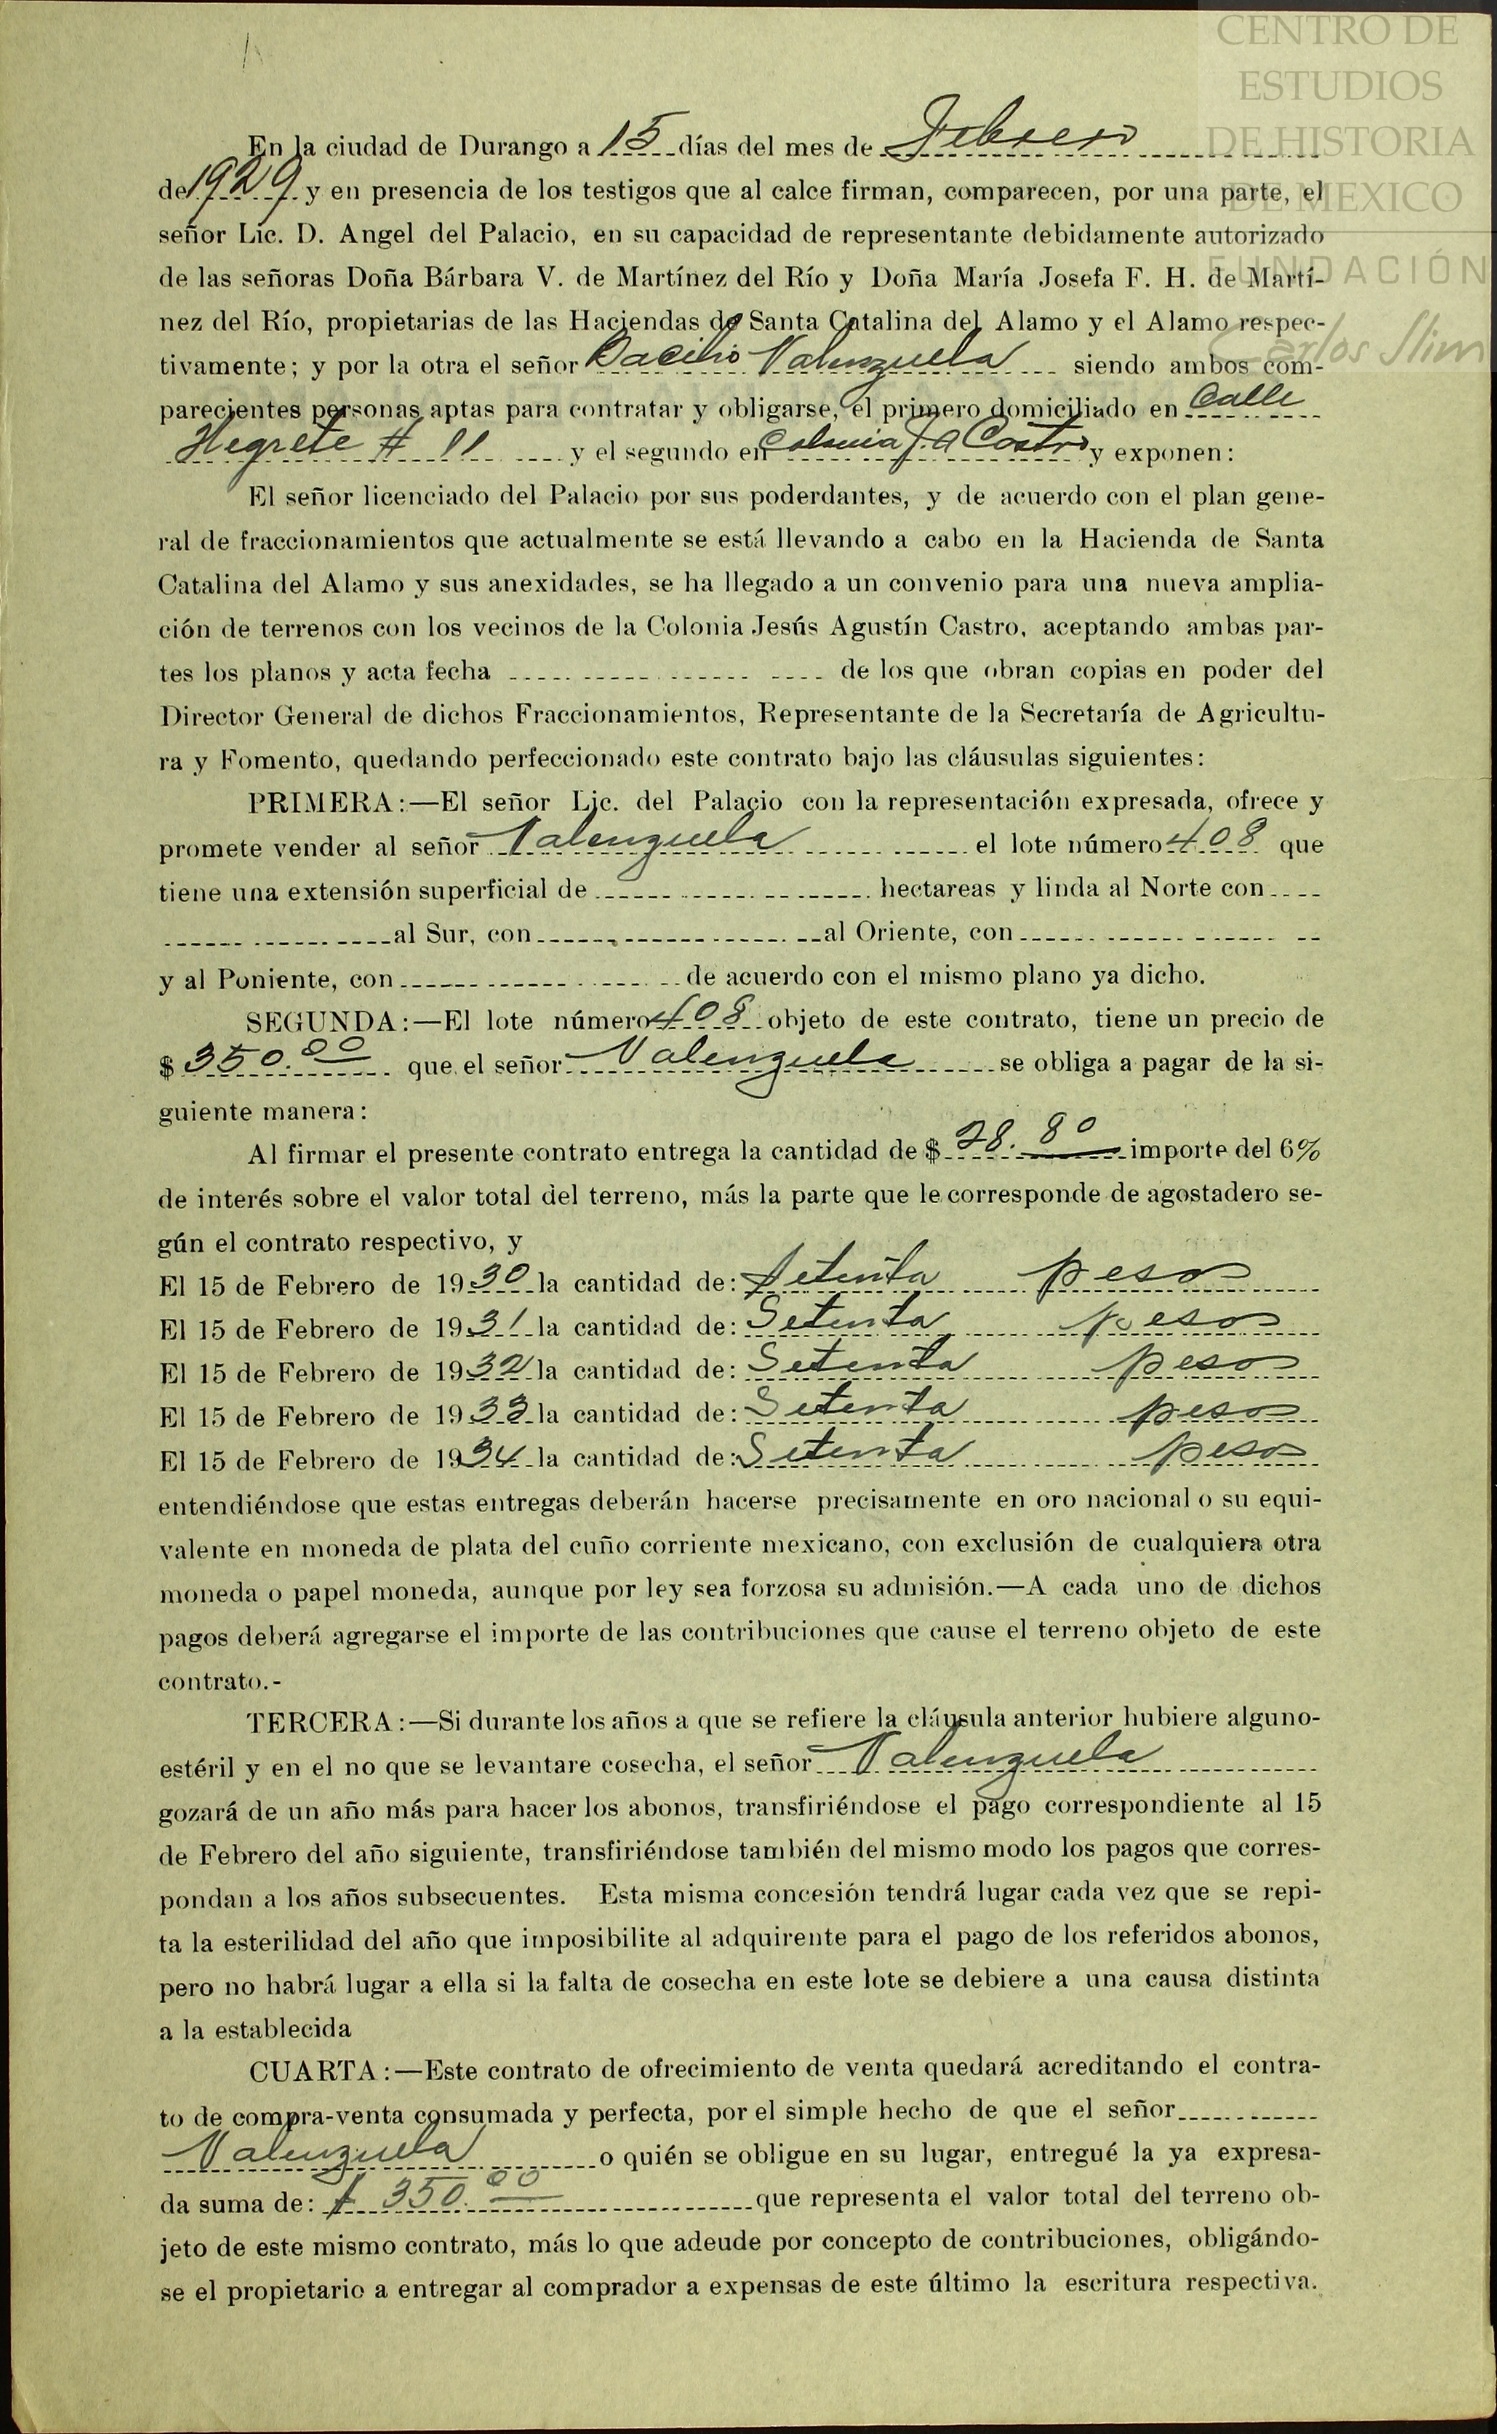 CENTRO DE
ESTUDIOS
DE HISTORIA
DE MEXICO
FUNDACIÓN
Carlos Slim
En la ciudad de Durango a 15 días del mes de Febrero
de 1929 y en presencia de los testigos que al calce firman, comparecen, por una parte, el
señor Lic. D. Angel del Palacio, en su capacidad de representante debidamente autorizado
de las señoras Doña Bárbara V. de Martínez del Río y Doña María Josefa F. H. de Martí-
nez del Río, propietarias de las Haciendas de Santa Catalina del Alamo y el Alamo respec-
tivamente; y por la otra el señor Bacilio Valenzuela siendo ambos com-
parecientes personas aptas para contratar y obligarse, el primero domiciliado en Calle
Negrete # 11 y el segundo en Colonia J. A Castro y exponen:
El señor licenciado del Palacio por sus poderdantes, y de acuerdo con el plan gene-
ral de fraccionamientos que actualmente se está llevando a cabo en la Hacienda de Santa
Catalina del Alamo y sus anexidades, se ha llegado a un convenio para una nueva amplia-
ción de terrenos con los vecinos de la Colonia Jesús Agustín Castro, aceptando ambas par-
tes los planos y acta fecha de los que obran copias en poder del
Director General de dichos Fraccionamientos, Representante de la Secretaría de Agricultu-
ra y Fomento, quedando perfeccionado este contrato bajo las cláusulas siguientes:
PRIMERA:—El señor Lic. del Palacio con la representación expresada, ofrece y
promete vender al señor Valenzuela el lote número 408 que
tiene una extensión superficial de hectareas y linda al Norte con
al Sur, con al Oriente, con
y al Poniente, con de acuerdo con el mismo plano ya dicho.
SEGUNDA:—El lote número 408 objeto de este contrato, tiene un precio de
$ 350.00 que el señor Valenzuela se obliga a pagar de la si-
guiente manera:
Al firmar el presente contrato entrega la cantidad de $ 28.80 importe del 6%
de interés sobre el valor total del terreno, más la parte que le corresponde de agostadero se-
gún el contrato respectivo, y
El 15 de Febrero de 1930 la cantidad de: Setenta pesos
El 15 de Febrero de 1931 la cantidad de: Setenta pesos
El 15 de Febrero de 1932 la cantidad de: Setenta pesos
El 15 de Febrero de 1933 la cantidad de: Setenta pesos
El 15 de Febrero de 1934 la cantidad de: Setenta pesos
entendiéndose que estas entregas deberán hacerse precisamente en oro nacional o su equi-
valente en moneda de plata del cuño corriente mexicano, con exclusión de cualquiera otra
moneda o papel moneda, aunque por ley sea forzosa su admisión.—A cada uno de dichos
pagos deberá agregarse el importe de las contribuciones que cause el terreno objeto de este
contrato.-
TERCERA:—Si durante los años a que se refiere la cláusula anterior hubiere alguno-
estéril y en el no que se levantare cosecha, el señor Valenzuela
gozará de un año más para hacer los abonos, transfiriéndose el pago correspondiente al 15
de Febrero del año siguiente, transfiriéndose también del mismo modo los pagos que corres-
pondan a los años subsecuentes. Esta misma concesión tendrá lugar cada vez que se repi-
ta la esterilidad del año que imposibilite al adquirente para el pago de los referidos abonos,
pero no habrá lugar a ella si la falta de cosecha en este lote se debiere a una causa distinta
a la establecida
CUARTA:—Este contrato de ofrecimiento de venta quedará acreditando el contra-
to de compra-venta consumada y perfecta, por el simple hecho de que el señor
Valenzuela o quién se obligue en su lugar, entregué la ya expresa-
da suma de: $ 350.00 que representa el valor total del terreno ob-
jeto de este mismo contrato, más lo que adeude por concepto de contribuciones, obligándo-
se el propietario a entregar al comprador a expensas de este último la escritura respectiva.